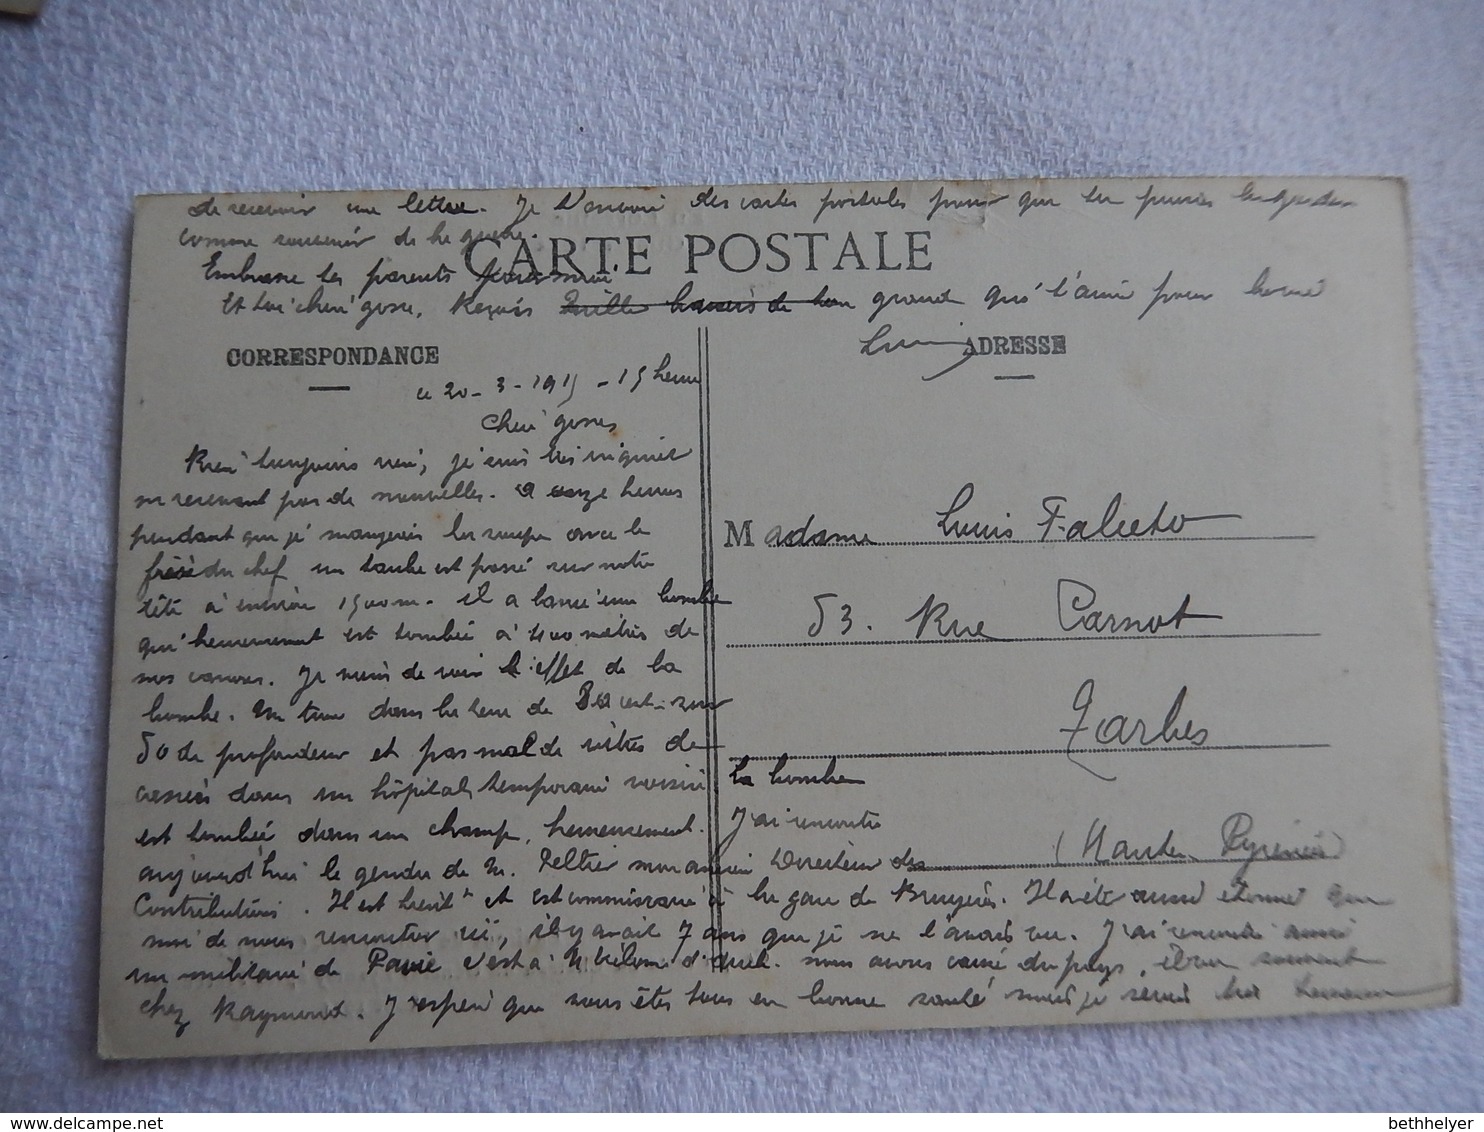 de recevoir une lettre. Je t'envoie des cartes postales pour que tu puisses les garder
comme souvenir de la guerre.
CARTE POSTALE
Embrasse tes parents pour moi.
Et toi chérie gosse, Reçois mille baisers de ton grand qui t'aime pour
Louis
CORRESPONDANCE
ADRESSE
ce 20-3-1915 - 15 heures
Chérie gosse
Rien toujours rien, je suis très inquiet
ne recevant pas de nouvelles. A onze heures
pendant que je mangeais la soupe avec le
frère du chef un taube est passé sur notre
tête à environ 1500 m. il a lancé une bombe
qui heureusement est tombée à 400 mètres de
nos canons. Je viens de voir l'effet de la
bombe. Un trou dans la terre de 80 cent. sur
50 de profondeur et pas mal de vitres de
cassées dans un hôpital temporaire voisin. la bombe
est tombée dans un champ, heureusement. J'ai rencontré
aujourd'hui le gendre de M. Peltier mon ancien Directeur des
Contributions. Il est et est commissaire à la gare de Bruyères. Il a été aussi étonné que
moi de nous rencontrer ici, il y avait 7 ans que je ne l'avais vu. J'ai rencontré aussi
un militaire de Pavie c'est à 4 kilom. d'Auch. nous avons causé du pays, il va souvent
chez Raymond. J'espère que vous êtes tous en bonne santé mais je serais bien heureux
Madame Louis Falceto
53. Rue Carnot
Tarbes
(Hautes Pyrénées)
bethhelyer